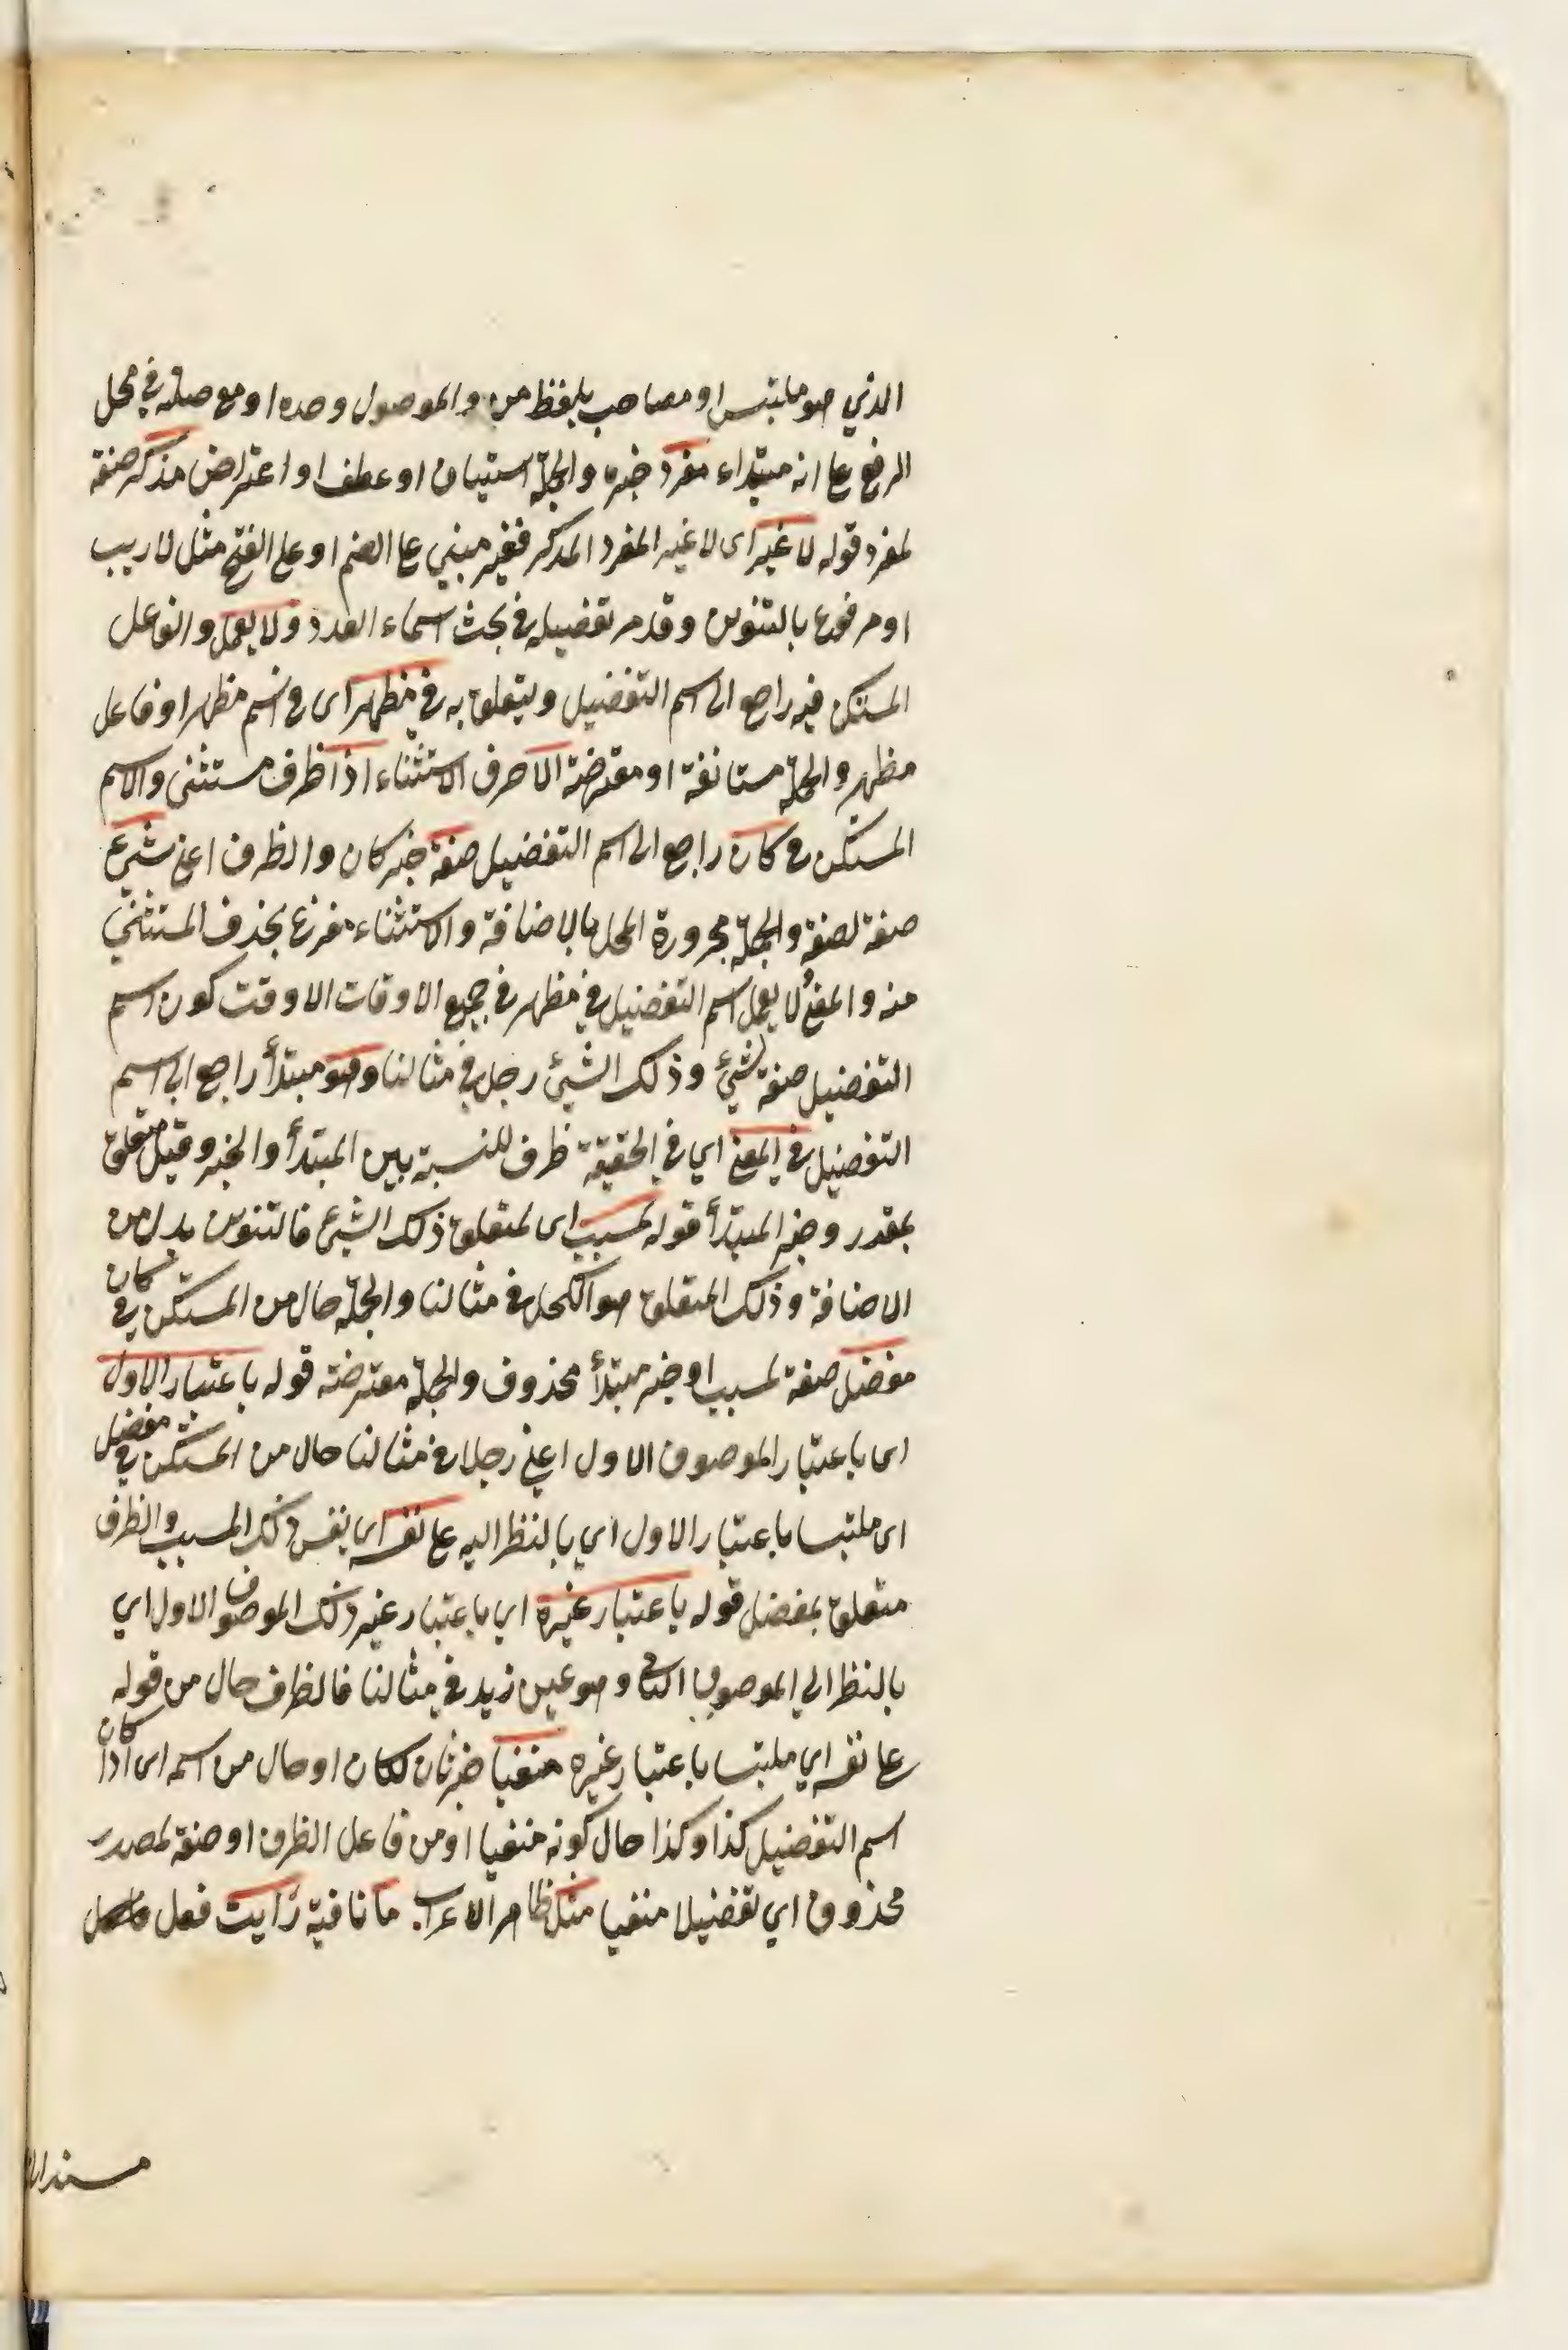 الذي هو ملتبس او مصاحب بلفظ من والموصول وحده او مع صلته في محل
الرفع على انه مبتداء مفرد خبره والجملة استيناف او عطف او اعتراض مذكر صفة
لمفرد قوله لا غير اى لا غير المفرد المذكر فغير مبني على الضم او على الفتح مثل لا ريب
او مرفوع بالتنوين وقد مر تفضيله في بحث اسماء العدد ولا يعمل والفاعل
المستكن فيه راجع الى اسم التفضيل ويتعلق به في مظهر اى في اسم مظهر او فاعل
مظهر والجملة مستانفة او معترضة الا حرف الاستثناء اذا ظرف مستثنى والاسم
المستكن في كان راجع الى اسم التفضيل صفة خبر كان والظرف اعني لشيء
صفة لصفة والجملة مجرورة المحل بالاضافة والاستثناء مفرغ بحذف المستثنى
منه والمعنى لا يعمل اسم التفضيل في مظهر في جميع الاوقات الا وقت كون اسم
التفضيل صفة لشئ وذلك الشئ رجل في مثالنا وهو مبتدأ راجع الى اسم
التفضيل في المعنى اي في الحقيقة ظرف للنسبة بين المبتدأ والخبر وقيل متعلق
بمقدر وخبر المبتدأ قوله لمسبب اى لمتعلق ذلك الشئ فالتنوين بدل من
الاضافة وذلك المتعلق هو الكحل في مثالنا والجملة حال من المستكن في كان
مفضل صفة لمسبب او خبر مبتدأ محذوف والجملة معترضة قوله باعتبار الاول
اى باعتبار الموصوف الاول اعني رجلا في مثالنا حال من المستكن في مفضل
اى ملتبسا باعتبار الاول اي بالنظر اليه على نفسه اى نفس ذلك المسبب والظرف
متعلق بمفضل قوله باعتبار غيره اي باعتبار غير ذلك الموصوف الاول اي
بالنظر الى الموصوف الثاني وهو عين زيد في مثالنا فالظرف حال من قوله
على نفسه اي ملتبسا باعتبار غيره منفيا خبر ثان لكان او حال من اسمه اى اذا كان
اسم التفضيل كذا وكذا حال كونه منفيا او من فاعل الظرف او صفة لمصدر
محذوف اي تفضيلا منفيا مثل ظاهر الاعراب ما نافية رايت فعل فاعل